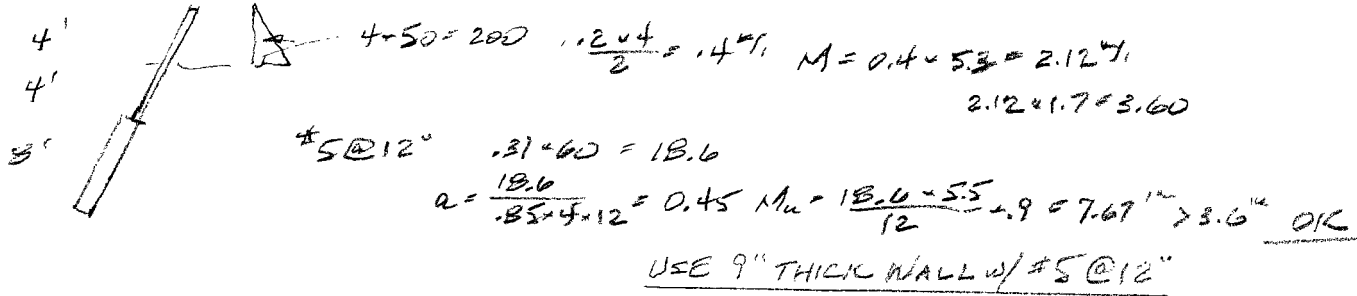 4'
4'
8'
4×50=200 .2×4/2 = .4k/1 M = 0.4×5.3 = 2.12k/1
2.12×1.7=3.60
#5@12" .31×60 = 18.6
a = 18.6/.85×4×12 = 0.45 Mu = 18.6×5.5/12 ×.9 = 7.67'k > 3.6'k OK
USE 9" THICK WALL W/ #5@12"